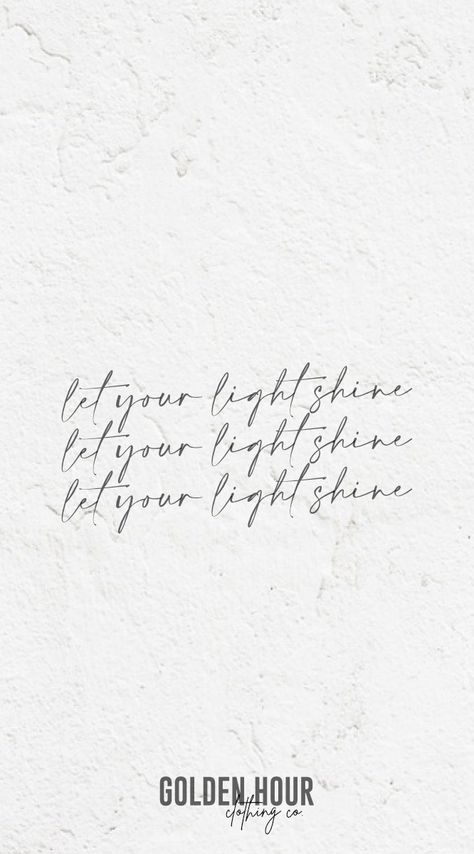 let your light shine
let your light shine
let your light shine
GOLDEN HOUR
clothing co.